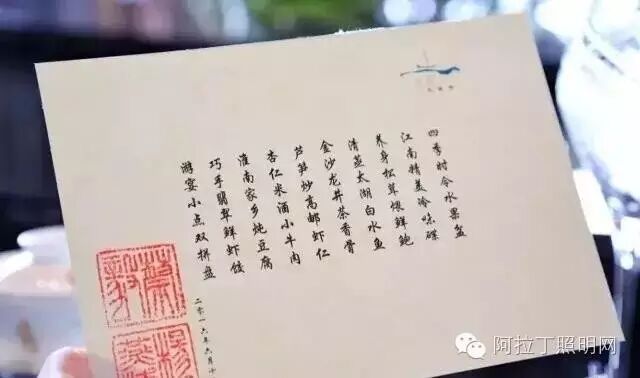 四季时令水果盆
江南精美冷味碟
养身松茸煨鲜鲍
清蒸太湖白水鱼
金沙龙井茶香骨
芦笋炒高邮虾仁
杏仁米酒小牛肉
淮南家乡炖豆腐
巧手翡翠鲜虾饺
游宴小点双拼盘
二零一六年六月
阿拉丁照明网